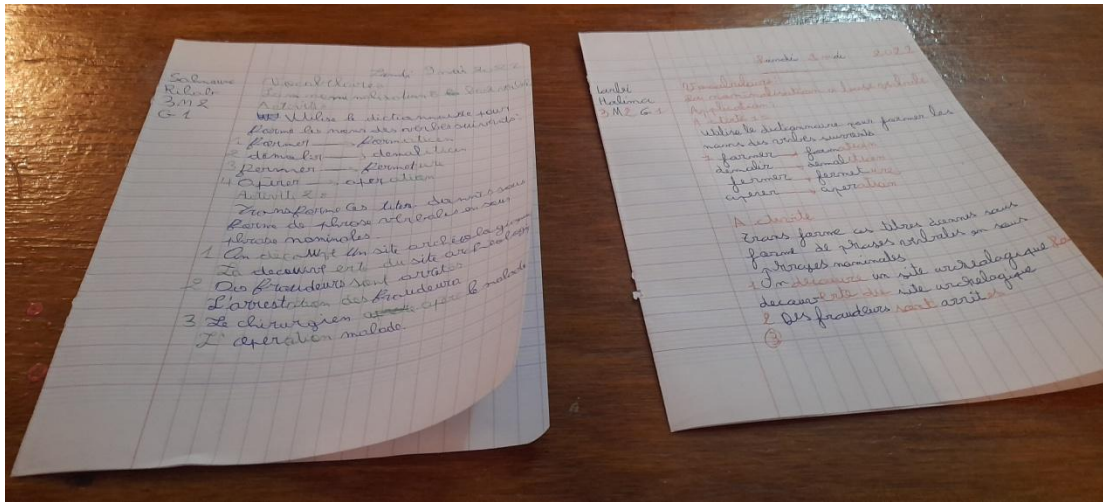 Salmane
Rihab
3M2
G1
Vocabulaire
Activité
Utilise le dictionnaire pour
forme les noms des verbes suivants
1 former → formation
2 démolir → démolition
3 fermer → fermeture
4 opérer → opération
Activité 2:
Transforme ces titres donnés sous
forme de phrase verbales en sous
phrase nominales
1 On découvre un site archéologique
La découverte du site archéologique
2 Des fraudeurs sont arretés
L'arrestation des fraudeurs
3 Le chirurgien opère le malade
L'opération malade.
Larbi
Halima
3M2 G1
Vocabulaire:
Application:
Activité 1:
utilise le dictionnaire pour former les
noms des verbes suivants
former → formation
démolir → démolition
fermer → fermeture
opérer → opération
Activité
Trans forme ces titres donnés sous
forme de phrases verbales en sous
phrases nominales
1 On découvre un site archéologique La
découverte du site archéologique
2 Des fraudeurs sont arrêtés
3